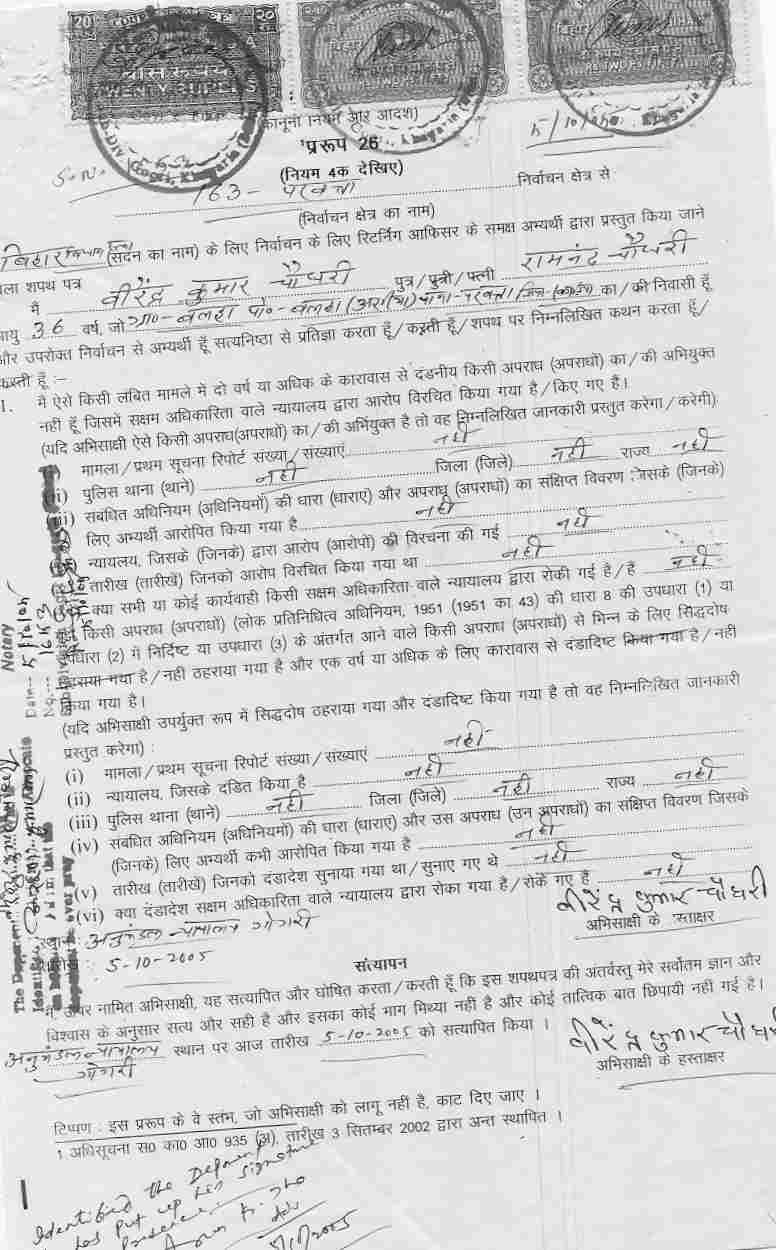 20
20
बीस रुपये
TWENTY RUPEES
(कानूनी नियम और आदेश)
'प्ररूप 26
5/10/2005
(नियम 4क देखिए)
S.N.
163- परबत्ता निर्वाचन क्षेत्र से
(निर्वाचन क्षेत्र का नाम)
बिहार विधान सभा (सदन का नाम) के लिए निर्वाचन के लिए रिटर्निंग आफिसर के समक्ष अभ्यर्थी द्वारा प्रस्तुत किया जाने
वाला शपथ पत्र
मैं वीरेंद्र कुमार चौधरी पुत्र/पुत्री/पत्नी रामनंद चौधरी
आयु 36 वर्ष, जो ग्रा०- बलहा पो०- बलहा थाना-परबत्ता जिला- का/की निवासी हूँ
और उपरोक्त निर्वाचन से अभ्यर्थी हूँ सत्यनिष्ठा से प्रतिज्ञा करता हूँ/करती हूँ/शपथ पर निम्नलिखित कथन करता हूँ/
करती हूँ :-
1. मै ऐसे किसी लंबित मामले में दो वर्ष या अधिक के कारावास से दंडनीय किसी अपराध (अपराधों) का/की अभियुक्त
नहीं हूँ जिसमें सक्षम अधिकारिता वाले न्यायालय द्वारा आरोप विरचित किया गया है/किए गए हैं।
(यदि अभिसाक्षी ऐसे किसी अपराध(अपराधों) का/की अभियुक्त है तो वह निम्नलिखित जानकारी प्रस्तुत करेगा/करेगी)
मामला/प्रथम सूचना रिपोर्ट संख्या/संख्याएं नहीं
पुलिस थाना (थाने) नहीं जिला (जिले) नहीं राज्य नहीं
संबंधित अधिनियम (अधिनियमों) की धारा (धाराएं) और अपराध (अपराधों) का संक्षिप्त विवरण जिसके (जिनके)
लिए अभ्यर्थी आरोपित किया गया है नहीं
न्यायलय, जिसके (जिनके) द्वारा आरोप (आरोपों) की विरचना की गई नहीं
तारीख (तारीखें) जिनको आरोप विरचित किया गया था नहीं
क्या सभी या कोई कार्यवाही किसी सक्षम अधिकारिता वाले न्यायालय द्वारा रोकी गई है/हैं नहीं
किसी अपराध (अपराधों) (लोक प्रतिनिधित्व अधिनियम, 1951 (1951 का 43) की धारा 8 की उपधारा (1) या
उपधारा (2) में निर्दिष्ट या उपधारा (3) के अंतर्गत आने वाले किसी अपराध (अपराधों) से भिन्न के लिए सिद्धदोष
ठहराया गया है/नहीं ठहराया गया है और एक वर्ष या अधिक के लिए कारावास से दंडादिष्ट किया गया है/नहीं
किया गया है।
(यदि अभिसाक्षी उपर्युक्त रूप में सिद्धदोष ठहराया गया और दंडादिष्ट किया गया है तो वह निम्नलिखित जानकारी
प्रस्तुत करेगा) :
(i) मामला/प्रथम सूचना रिपोर्ट संख्या/संख्याएं नहीं
(ii) न्यायालय, जिसके दंडित किया है नहीं
(iii) पुलिस थाना (थाने) नहीं जिला (जिले) नहीं राज्य नहीं
(iv) संबंधित अधिनियम (अधिनियमों) की धारा (धाराएं) और उस अपराध (उन अपराधों) का संक्षिप्त विवरण जिसके
(जिनके) लिए अभ्यर्थी कभी आरोपित किया गया है नहीं
(v) तारीख (तारीखें) जिनको दंडादेश सुनाया गया था/सुनाए गए थे नहीं
(vi) क्या दंडादेश सक्षम अधिकारिता वाले न्यायालय द्वारा रोका गया है/रोकें गए है नहीं
वीरेंद्र कुमार चौधरी
अभिसाक्षी के हस्ताक्षर
अनुमंडल न्यायालय गोगरी
5-10-2005
सत्यापन
मैं ऊपर नामित अभिसाक्षी, यह सत्यापित और घोषित करता/करती हूँ कि इस शपथपत्र की अंतर्वस्तु मेरे सर्वोतम ज्ञान और
विश्वास के अनुसार सत्य और सही है और इसका कोई भाग मिथ्या नहीं है और कोई तात्विक बात छिपायी नहीं गई है।
अनुमंडल न्यायालय गोगरी स्थान पर आज तारीख 5-10-2005 को सत्यापित किया ।
वीरेंद्र कुमार चौधरी
अभिसाक्षी के हस्ताक्षर
टिप्पण : इस प्ररूप के वे स्तंभ, जो अभिसाक्षी को लागू नहीं है, काट दिए जाए ।
1 अधिसूचना स0 का0 आ0 935 (अ), तारीख 3 सितम्बर 2002 द्वारा अन्त स्थापित ।
Identified the Deponent
has put up his signature
Presence
Notary